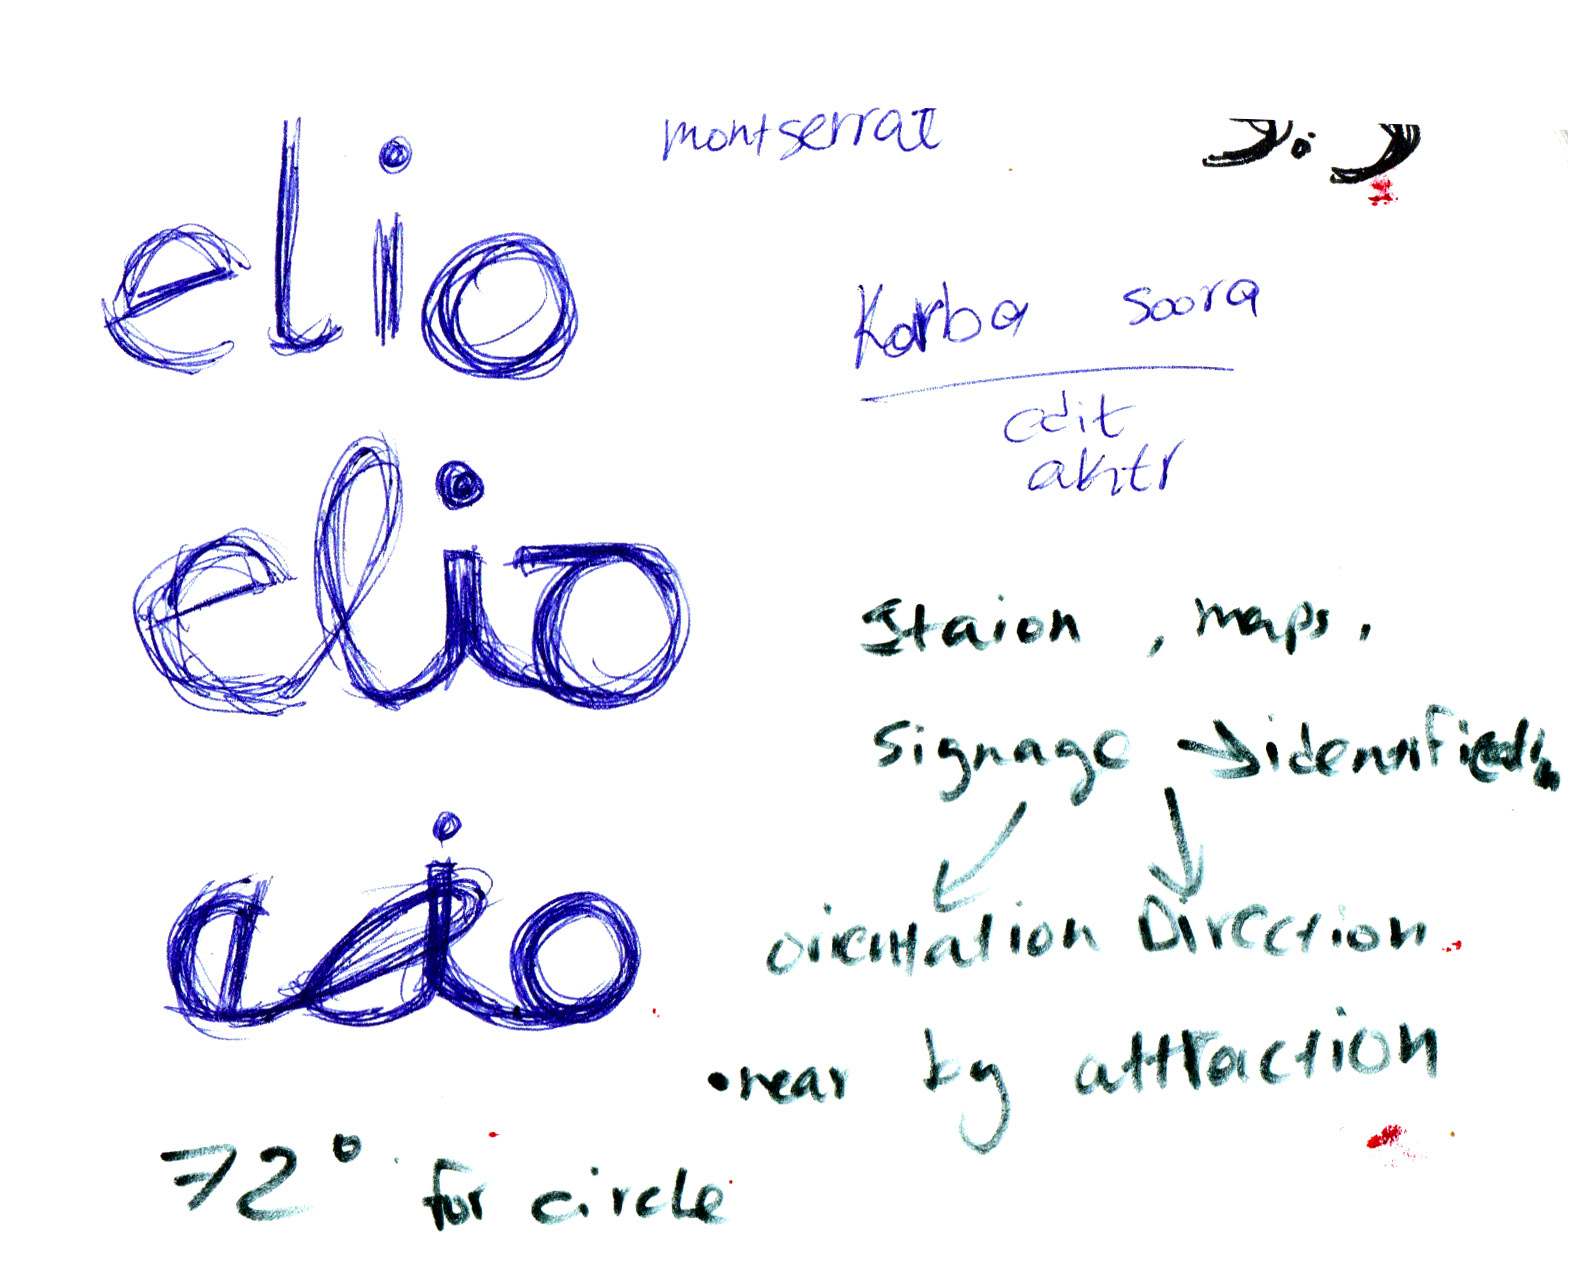 elio
montserrat
Korba soora
edit
akhtr
elio
Staion , maps,
Signage →
orientation Direction
elio
• near by attraction
72° for circle